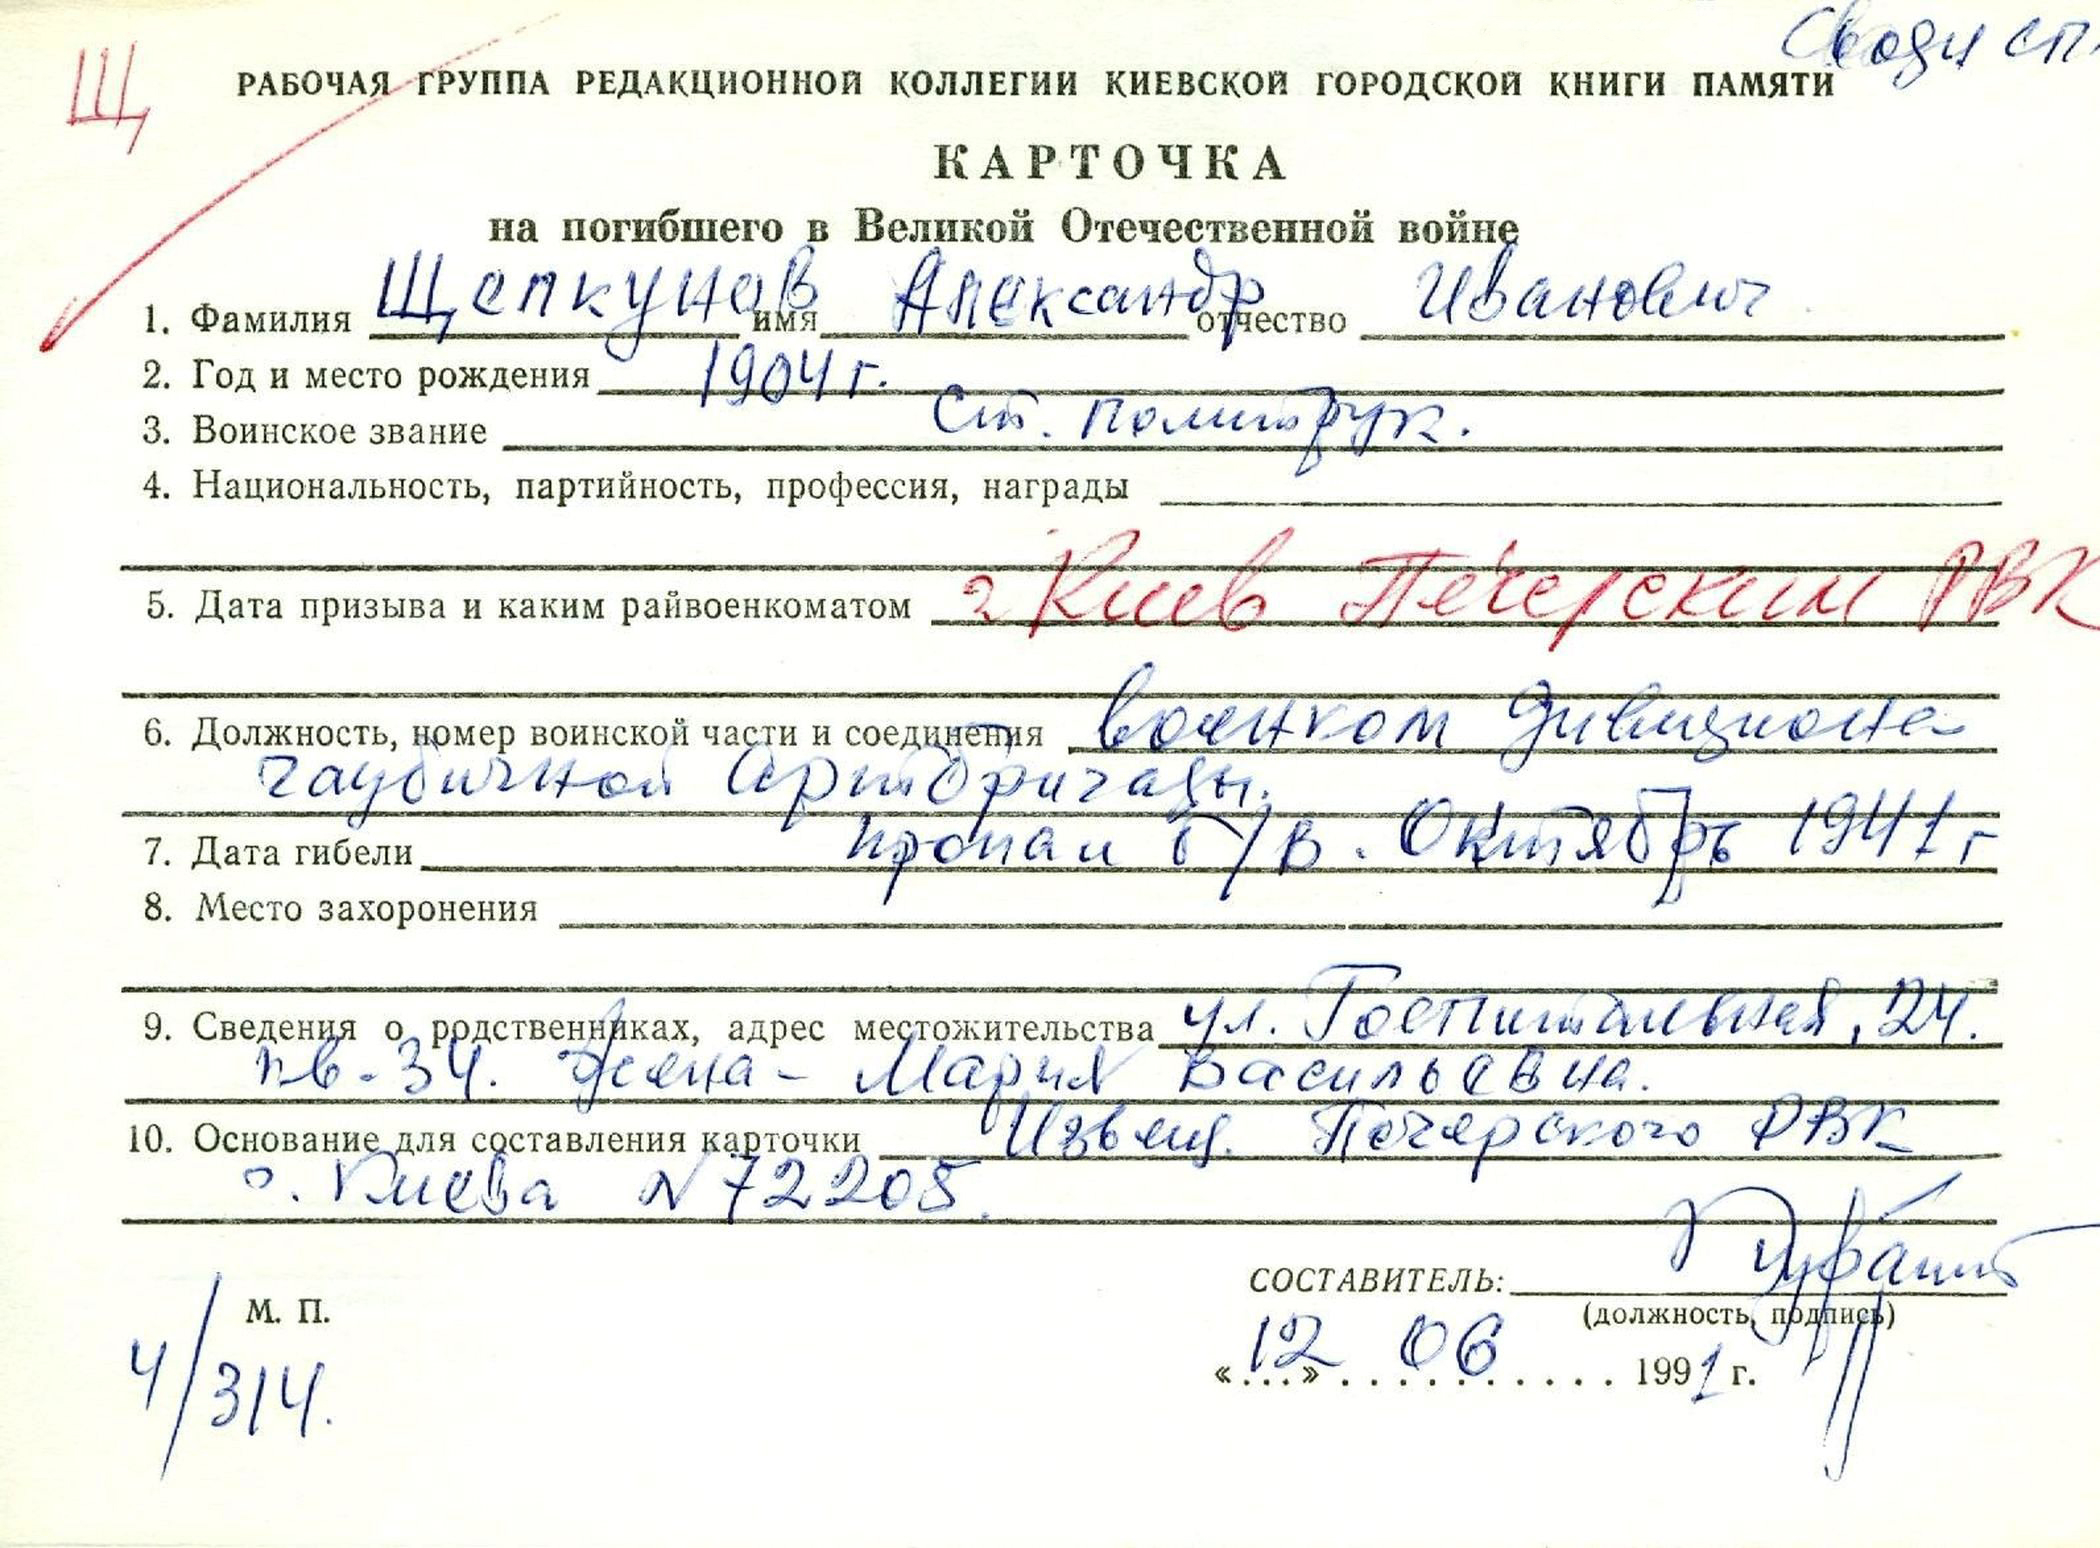 Щ
Сводн сп.
РАБОЧАЯ ГРУППА РЕДАКЦИОННОЙ КОЛЛЕГИИ КИЕВСКОЙ ГОРОДСКОЙ КНИГИ ПАМЯТИ
КАРТОЧКА
на погибшего в Великой Отечественной войне
1. Фамилия Щепкунов имя Александр отчество Иванович
2. Год и место рождения 1904 г.
3. Воинское звание Ст. политрук.
4. Национальность, партийность, профессия, награды
5. Дата призыва и каким райвоенкоматом г Киев Печерским РВК
6. Должность, номер воинской части и соединения военком дивизиона
гаубичной Артбригады.
7. Дата гибели пропал б/в. Октябрь 1941 г
8. Место захоронения
9. Сведения о родственниках, адрес местожительства ул. Госпитальная, 24.
кв-34. Жена- Мария Васильевна.
10. Основание для составления карточки Извещ. Печерского РВК
г. Киева N 72205.
СОСТАВИТЕЛЬ:
(должность, подпись)
М. П.
«12» 06 1991 г.
4/314.